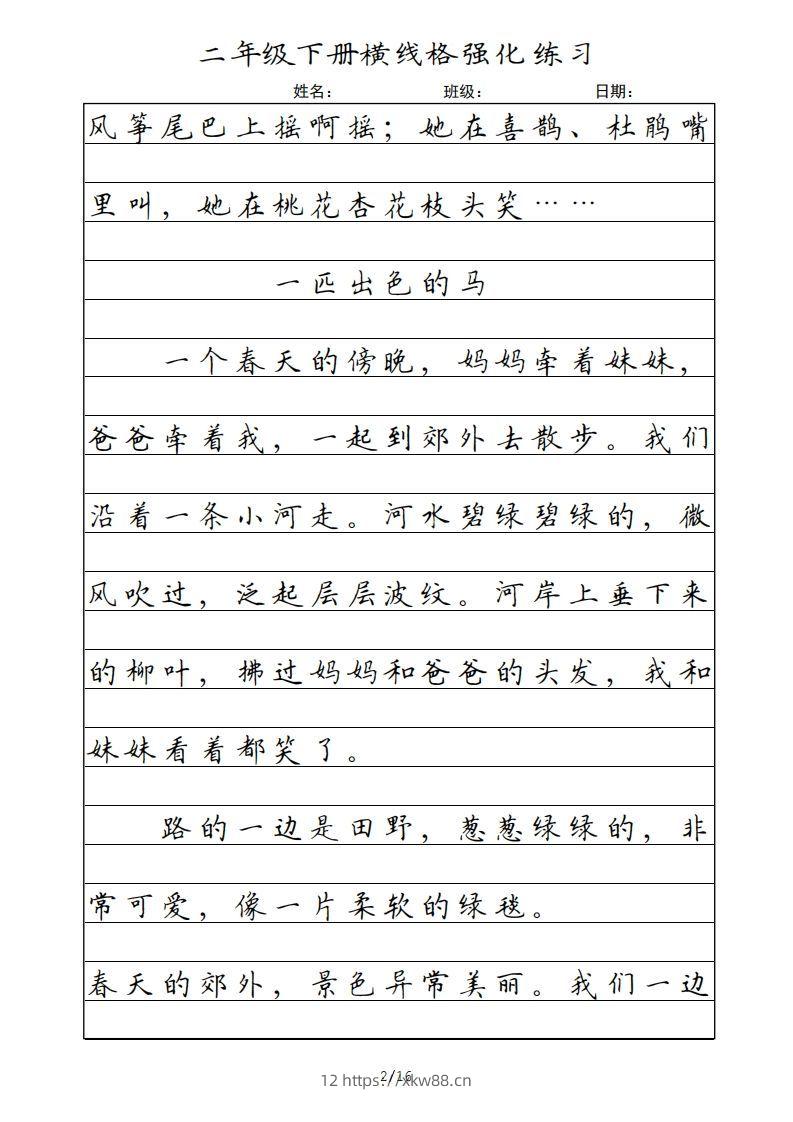 二年级下册横线格强化练习
姓名： 班级： 日期：
风筝尾巴上摇啊摇；她在喜鹊、杜鹃嘴
里叫，她在桃花杏花枝头笑……
一匹出色的马
一个春天的傍晚，妈妈牵着妹妹，
爸爸牵着我，一起到郊外去散步。我们
沿着一条小河走。河水碧绿碧绿的，微
风吹过，泛起层层波纹。河岸上垂下来
的柳叶，拂过妈妈和爸爸的头发，我和
妹妹看着都笑了。
路的一边是田野，葱葱绿绿的，非
常可爱，像一片柔软的绿毯。
春天的郊外，景色异常美丽。我们一边
2/16
12 https://xkw88.cn